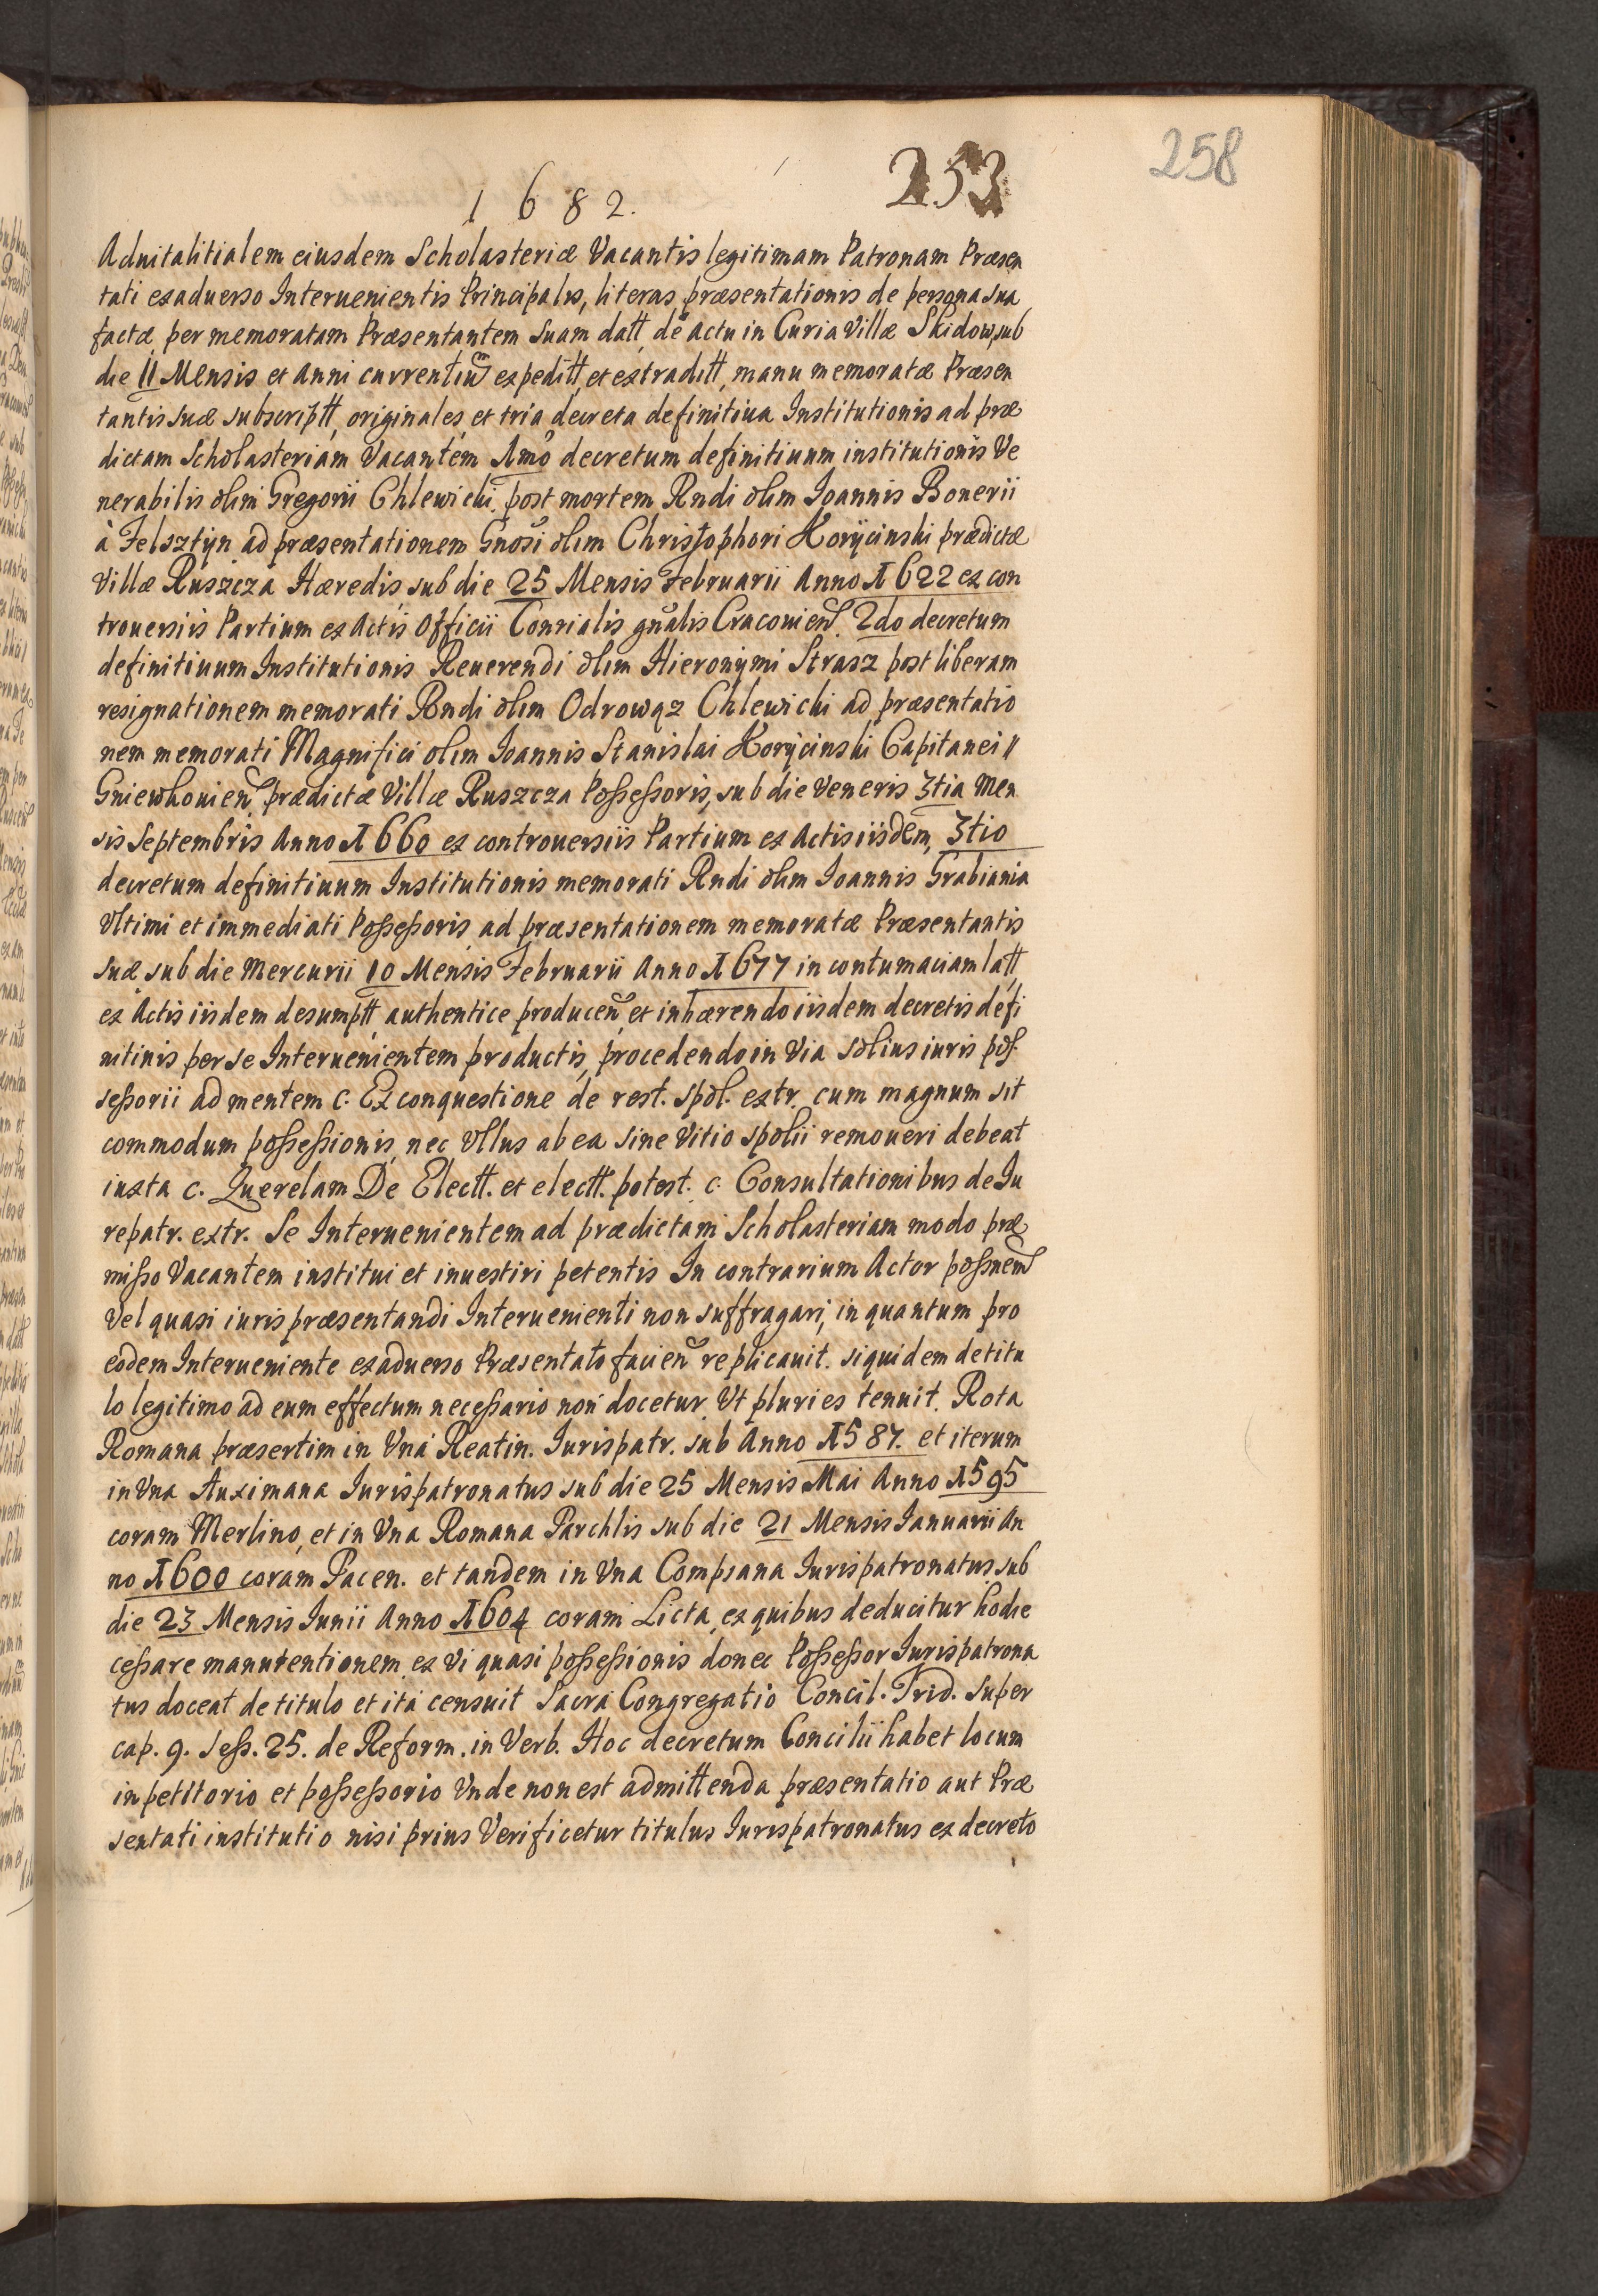 258
253
1682.
Aduitalitialem eiusdem Scholasteriæ Vacantis legitimam Patronam Præsen
tati exaduerso Interuenientis Principalis, literas præsentationis de persona sua
factæ per memoratam Præsentantem suam datt, de actu in Curia Villæ Skidow, sub
die 11 Mensis et Anni currentium expeditt, et extraditt, manu memoratæ Præsen
tantis suæ subscriptt, originales, et tria decreta definitiua Institutionis ad præ
dictam Scholasteriam Vacantem 1mo decretum definitiuum institutionis Ve
nerabilis olim Gregorii Chlewicki, post mortem Rndi olim Ioannis Bonerii
à Felsztyn ad præsentationem Gnosi olim Christophori Korycinski prædictæ
Villæ Ruszcza Hæredis, sub die 25 Mensis Februarii Anno 1622 ex con
trouersiis Partium ex Actis Officii Consialis gnalis Cracouien. 2do decretum
definitiuum Institutionis Reuerendi olim Hieronymi Strasz post liberam
resignationem memorati Rndi olim Odrowąz Chlewicki ad præsentatio
nem memorati Magnifici olim Ioannis Stanislai Korycinski Capitanei
Gniewkouien prædictæ Villæ Ruszcza Possessoris, sub die Veneris 3tia Men
sis Septembris Anno 1660 ex controuersiis Partium ex Actis iisdem, 3tio
decretum definitiuum Institutionis memorati Rndi olim Ioannis Grabiania
Vltimi et immediati Possessoris ad præsentationem memoratæ Præsentantis
suæ sub die Mercurii 10 Mensis Februarii Anno 1677 in contumaciam latt,
ex Actis iisdem desumptt, authentice producen, et inhærendo iisdem decretis defi
nitiuis per se Interuenientem productis, procedendo in Via solius iuris pos
sessorii ad mentem c. Ex conquestione de rest. spol. extr. cum magnum sit
commodum possessionis, nec Vllus ab ea sine Vitio spolii remoueri debeat
iuxta c. Querelam De Electt. et electt. potest. c. Consultationibus de Iu
repatr. extr. Se Interuenientem ad prædictam Scholasteriam modo præ
misso Vacantem institui et inuestiri petentis In contrarium Actor possnem
Vel quasi iuris præsentandi Interuenienti non suffragari, in quantum pro
eodem Interueniente exaduerso Præsentato facien replicauit. siquidem de titu
lo legitimo ad eum effectum necessario non docetur, Vt pluries tenuit. Rota
Romana præsertim in Vna Reatin. Iurispatr. sub Anno 1587. et iterum
in Vna Auximana Iurispatronatus sub die 25 Mensis Mai Anno 1595
coram Merlino, et in Vna Romana Parchlis sub die 21 Mensis Ianuarii An
no 1600 coram Pacen. et tandem in Vna Compsana Iurispatronatus sub
die 23 Mensis Iunii Anno 1604 coram Licta, ex quibus deducitur hodie
cessare manutentionem ex Vi quasi possessionis donec Possessor Iurispatrona
tus doceat de titulo et ita censuit Sacra Congregatio Concil. Trid. super
cap. 9. Sess. 25. de Reform. in Verb. Hoc decretum Concilii habet locum
in petitorio et possessorio Vnde non est admittenda præsentatio aut Præ
sentati institutio nisi prius Verificetur titulus Iurispatronatus ex decreto